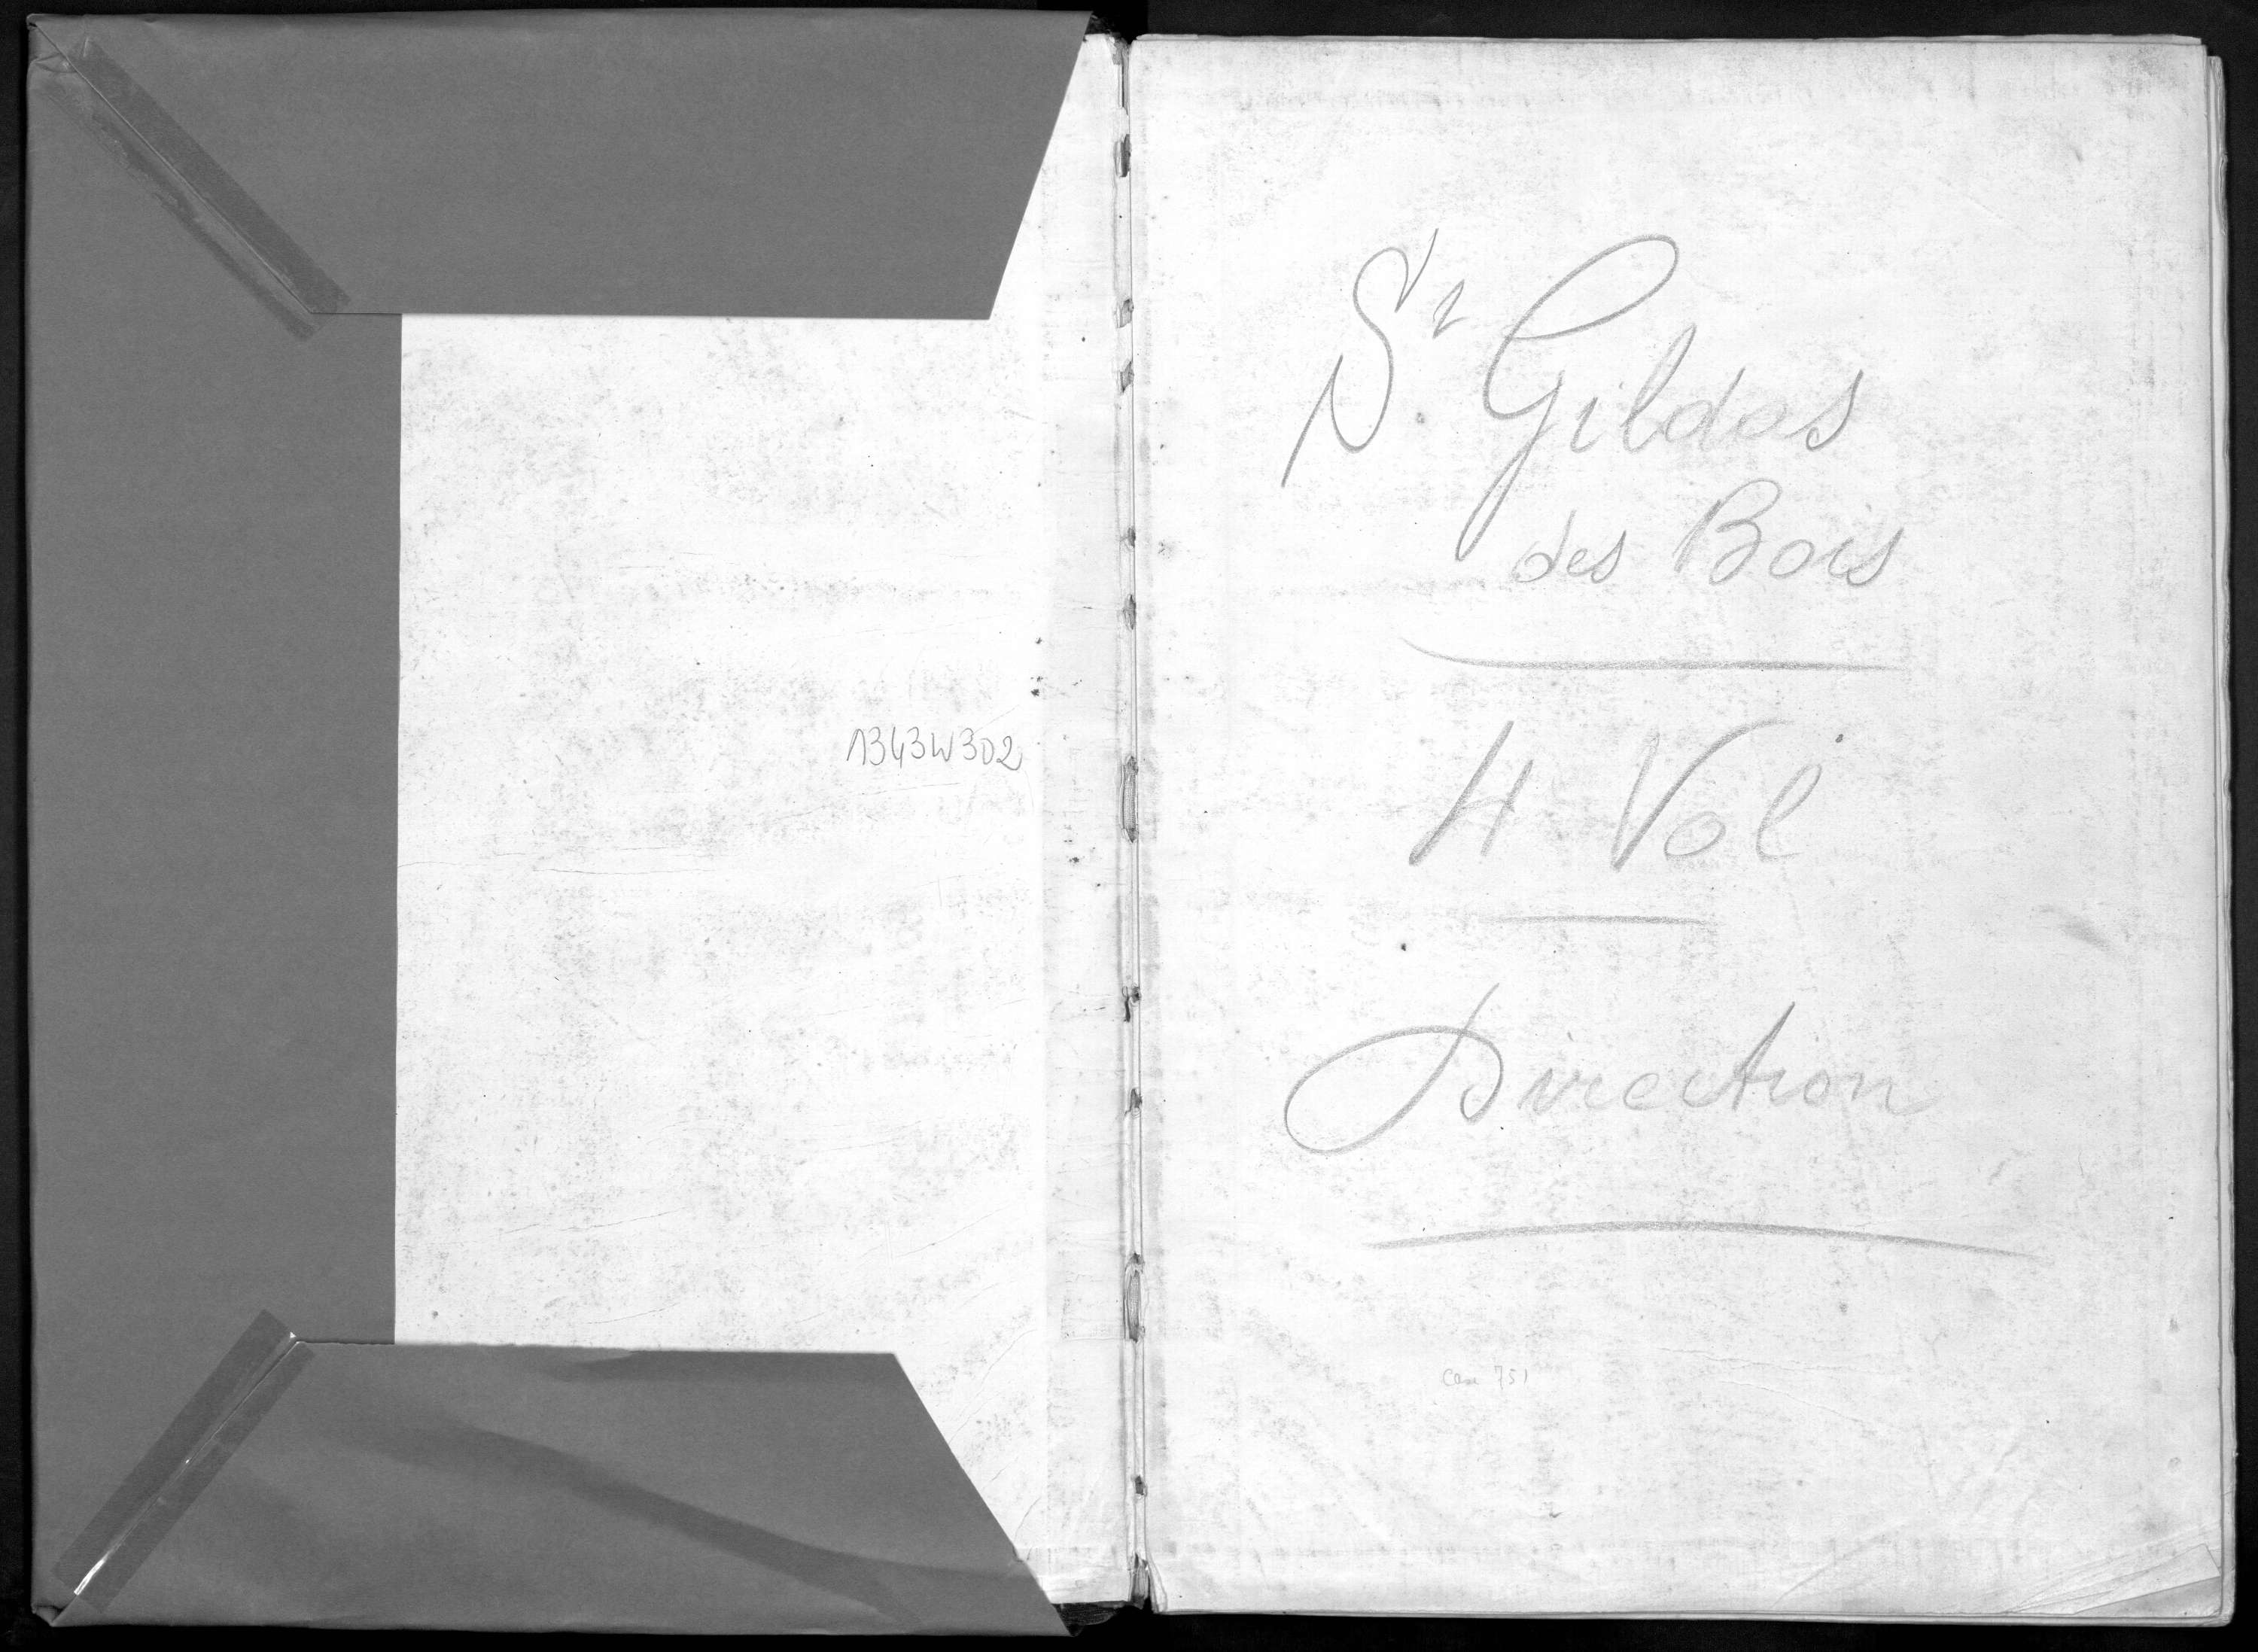 1343W302
St Gildas
des Bois
4 Vol
Direction
Case 751